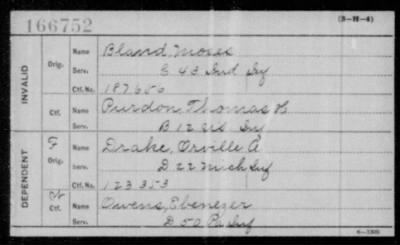 166752
(3-H-4)
INVALID
Orig.
Name Bland, Moses
Serv. E 43 Ind Inf
Ctf. No. 187656
Ctf.
Name Purdon, Thomas
Serv. B 12 US Inf
DEPENDENT
Orig.
Name Drake, Orville A
Serv. D 22 Mich Inf
Ctf. No. 123353
Ctf.
Name Owens, Ebenezer
Serv. D 50 Pa Inf